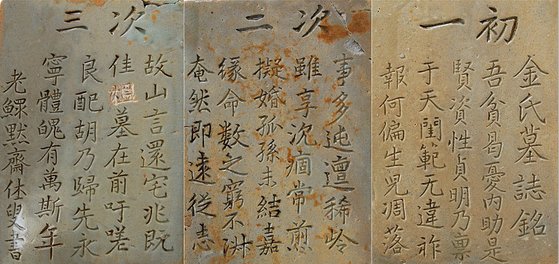 初一
金氏墓誌銘
吾貧曷憂內助是
賢資性貞明乃稟
于天閨範无違祚
報何偏生児凋落
次二
事多迍邅稀岭
雖享沈痼常煎
擬婚孤孫未結嘉
緣命數之窮不淑
奄然即遠從志
次三
故山言還宅兆既
佳墓在前吁嗟
良配胡乃歸先永
寧體魄有萬斯年
老鰥默齋休叟書